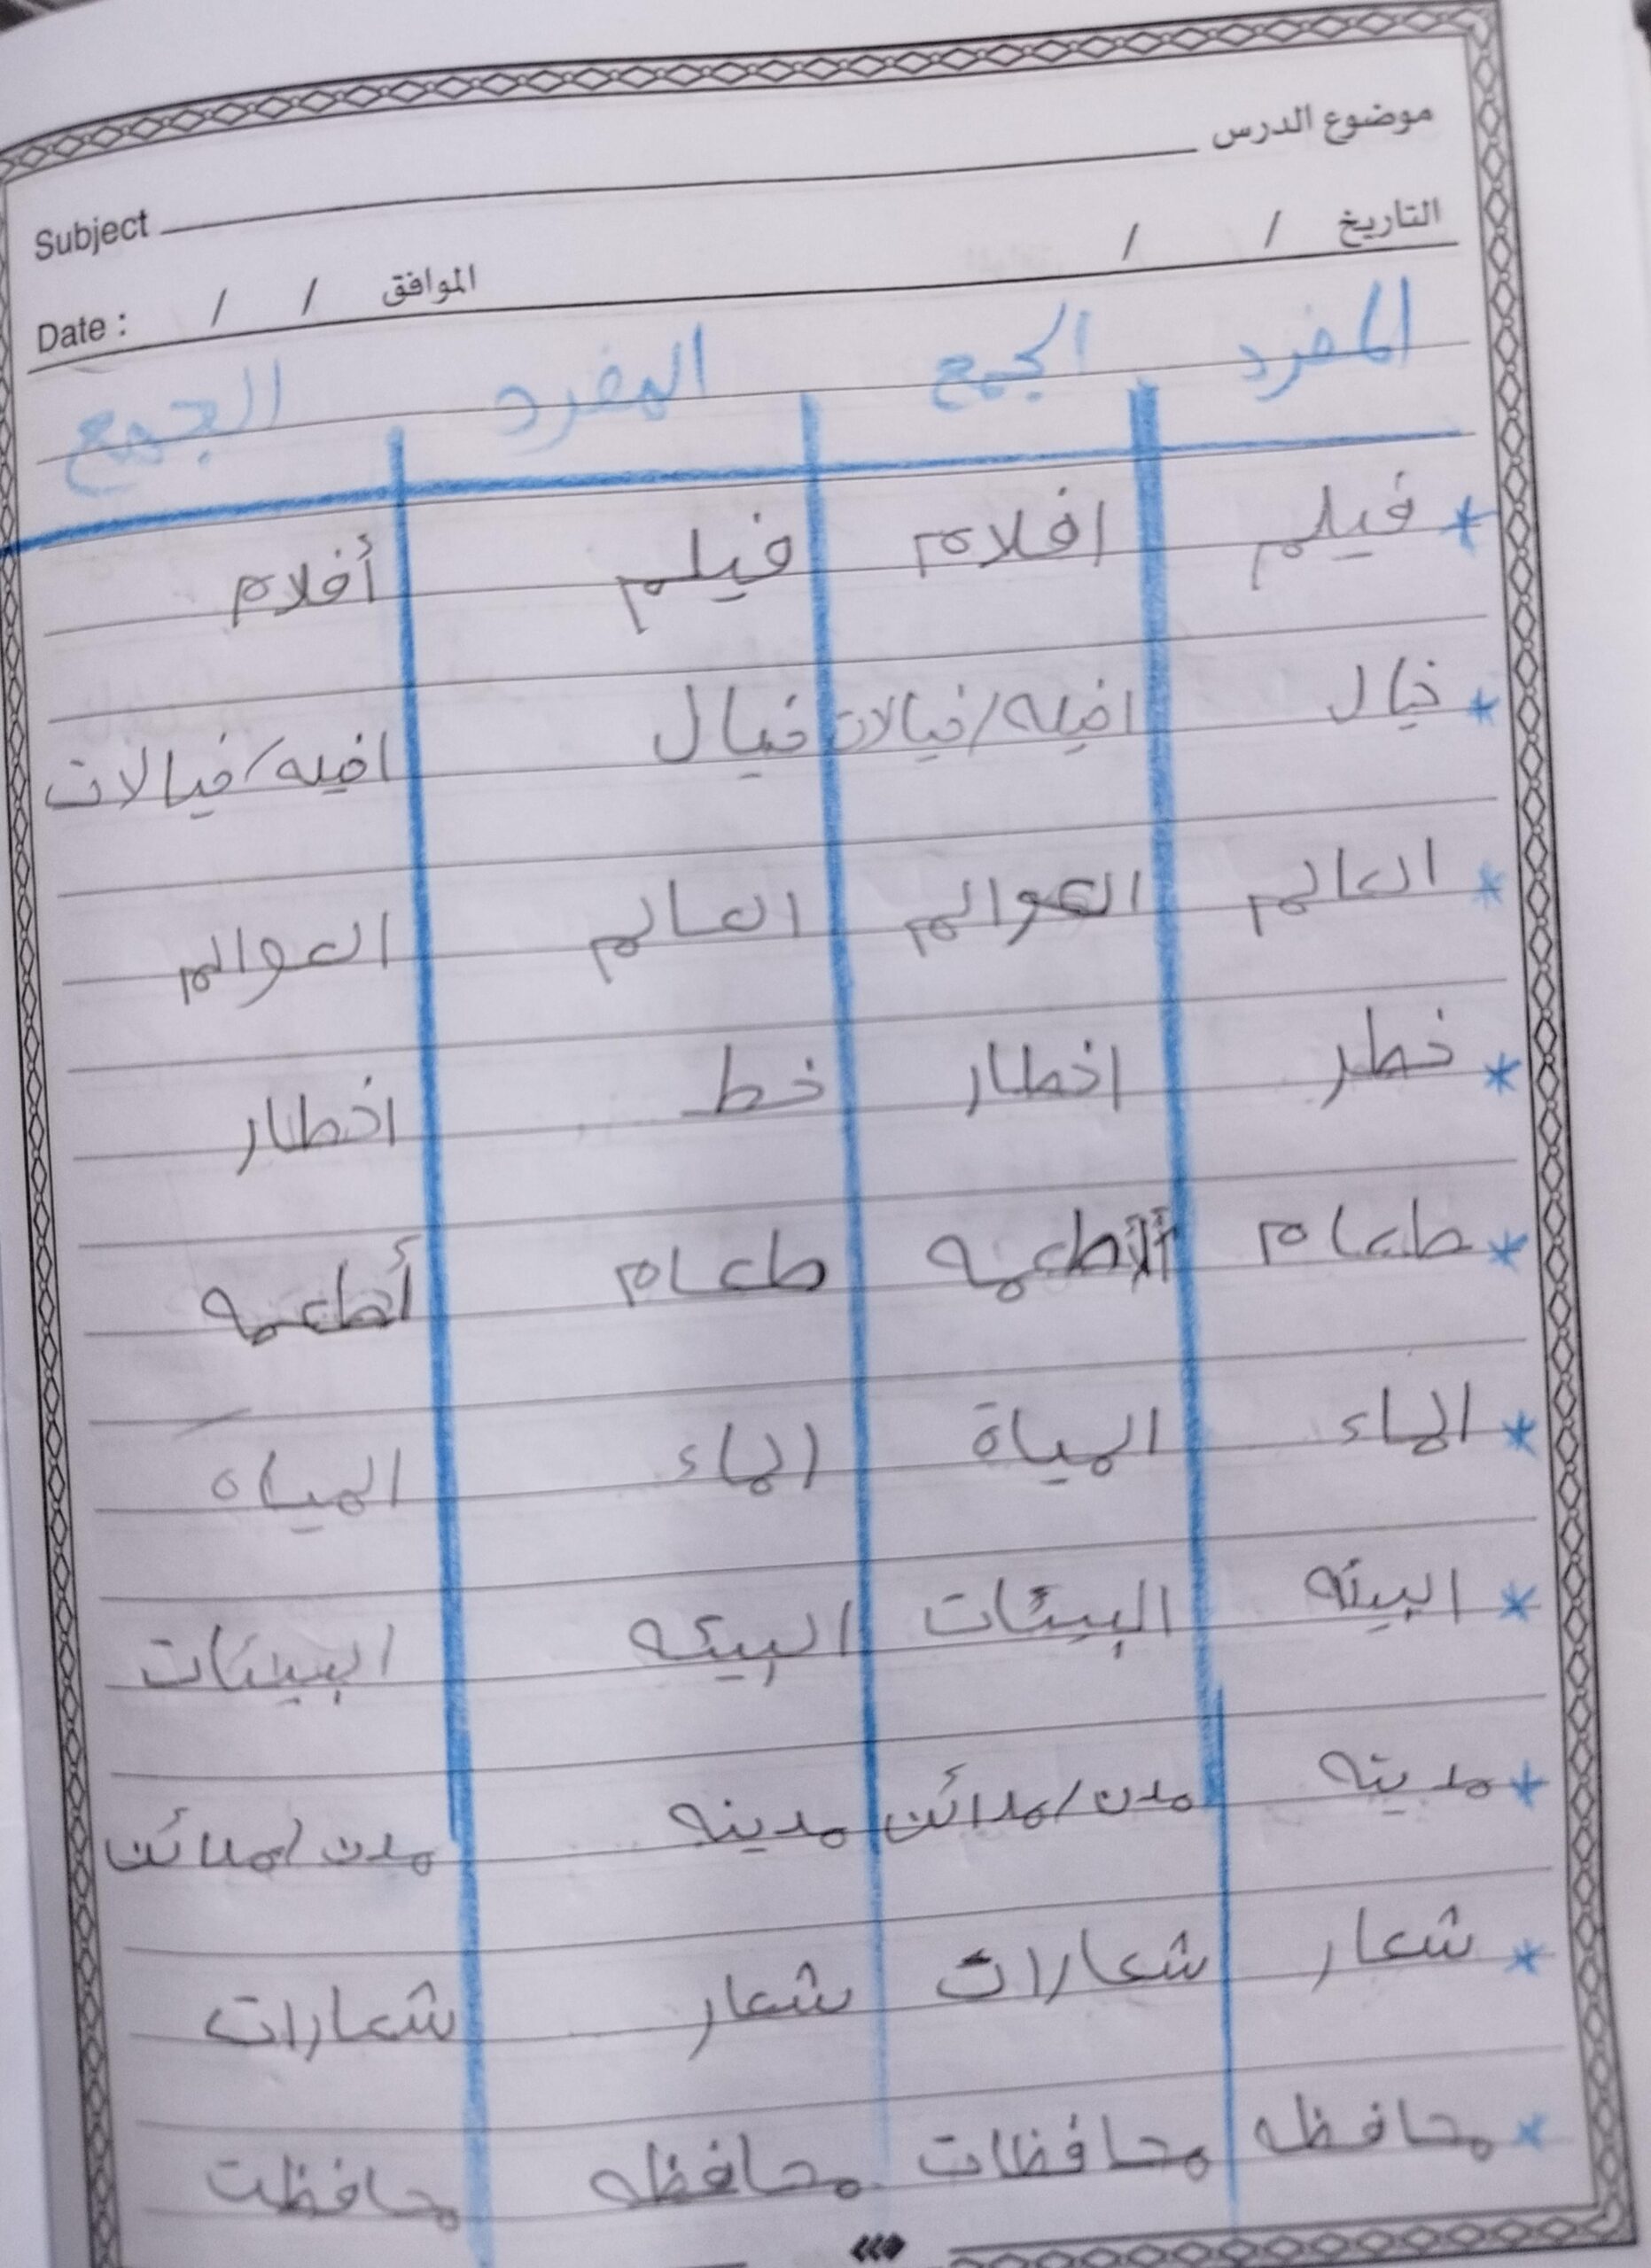 موضوع الدرس Subject
التاريخ / / الموافق / / Date :
المفرد الجمع المفرد الجمع
* فيلم افلام فيلم أفلام
* خيال اخيله/خيالات خيال اخيله/خيالات
* العالم العوالم العالم العوالم
* خطر اخطار خط اخطار
* طعام أطعمه طعام أطعمه
* الماء المياة الماء المياه
* البيئه البيئات البيئه البيئات
* مدينه مدن/مدائن مدينه مدن/مدائن
* شعار شعارات شعار شعارات
* محافظه محافظات محافظه محافظت